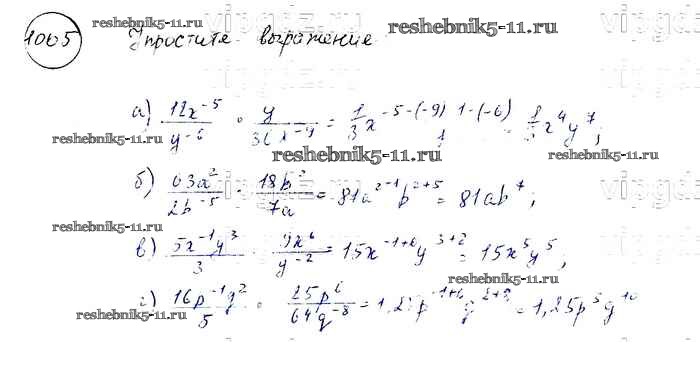 1005 Упростите выражение
reshebnik5-11.ru
а) 12x⁻⁵/y⁻⁶ · y/36x⁻⁹ = 1/3 x⁻⁵⁻⁽⁻⁹⁾ y¹⁻⁽⁻⁶⁾ = 1/3 x⁴y⁷;
reshebnik5-11.ru
reshebnik5-11.ru
reshebnik5-11.ru
б) 63a²/2b⁻⁵ · 18b²/7a = 81a²⁻¹b²⁺⁵ = 81ab⁷;
reshebnik5-11.ru
в) 5x⁻¹y³/3 · 9x⁶/y⁻² = 15x⁻¹⁺⁶y³⁺² = 15x⁵y⁵,
reshebnik5-11.ru
г) 16p⁻¹q²/5 · 25p⁶/64q⁻⁸ = 1,25p⁻¹⁺⁶q²⁺⁸ = 1,25p⁵q¹⁰
reshebnik5-11.ru